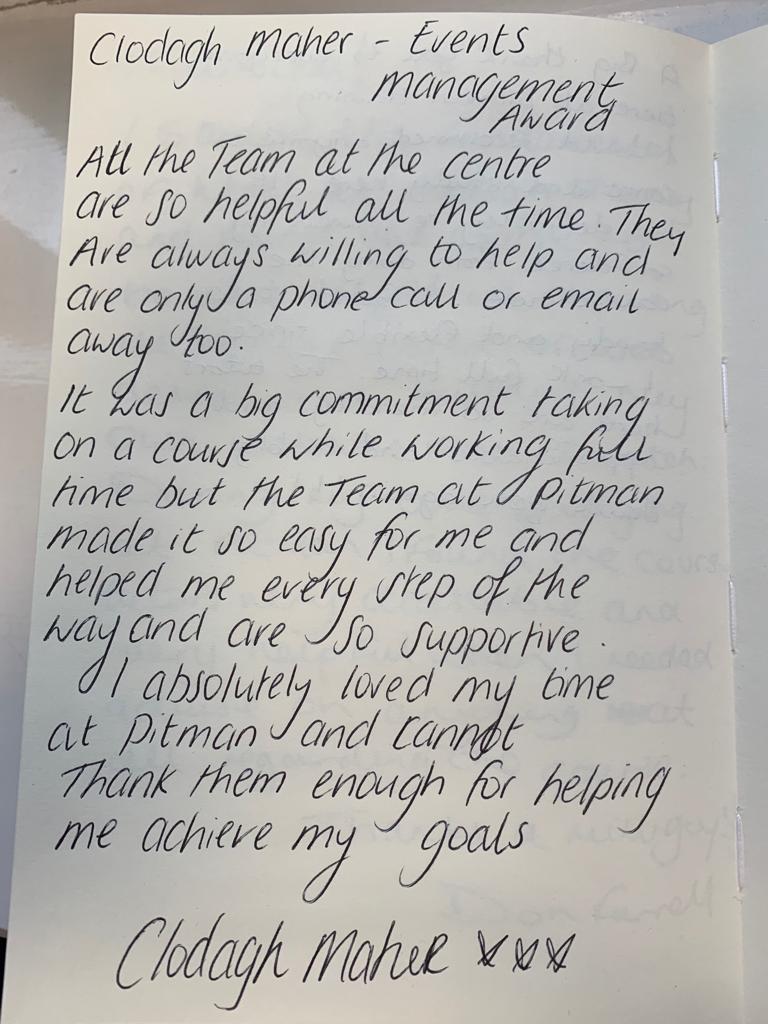 Clodagh Maher - Events
Management
Award
All the Team at the centre
are so helpful all the time. They
Are always willing to help and
are only a phone call or email
away too.
It was a big commitment taking
on a course while working full
time but the Team at Pitman
made it so easy for me and
helped me every step of the
way and are so supportive.
I absolutely loved my time
at Pitman and cannot
Thank them enough for helping
me achieve my goals
Clodagh Maher xxx